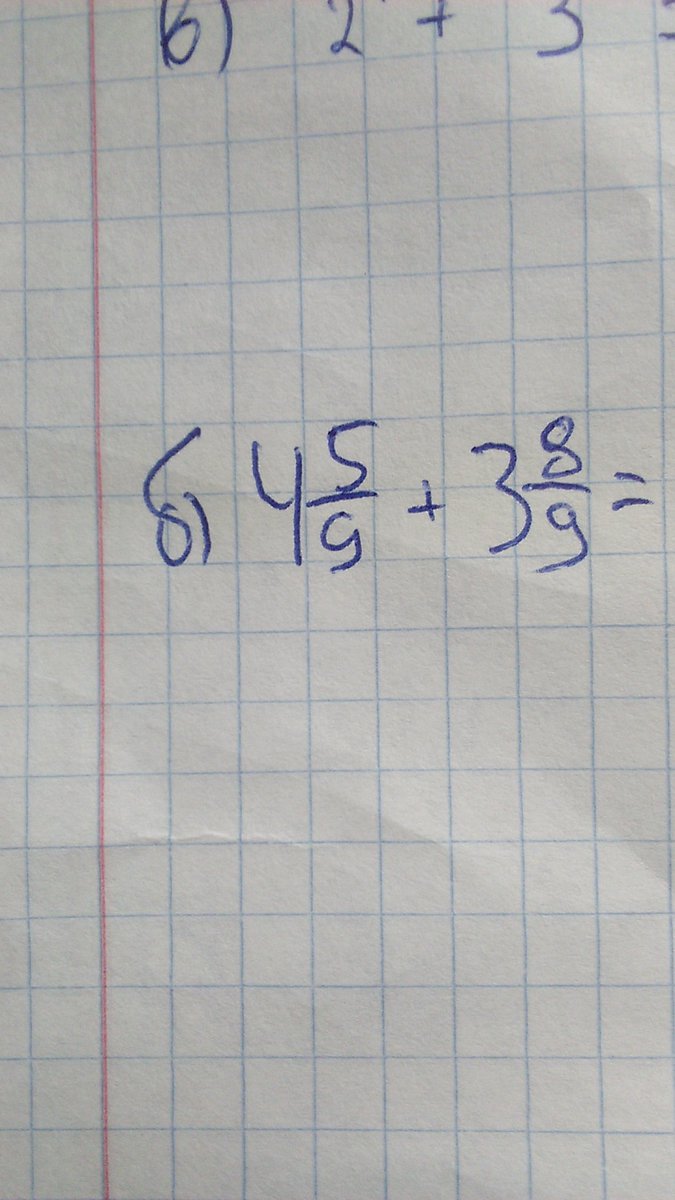 в) 2 + 3
б) 4 5/9 + 3 8/9 =